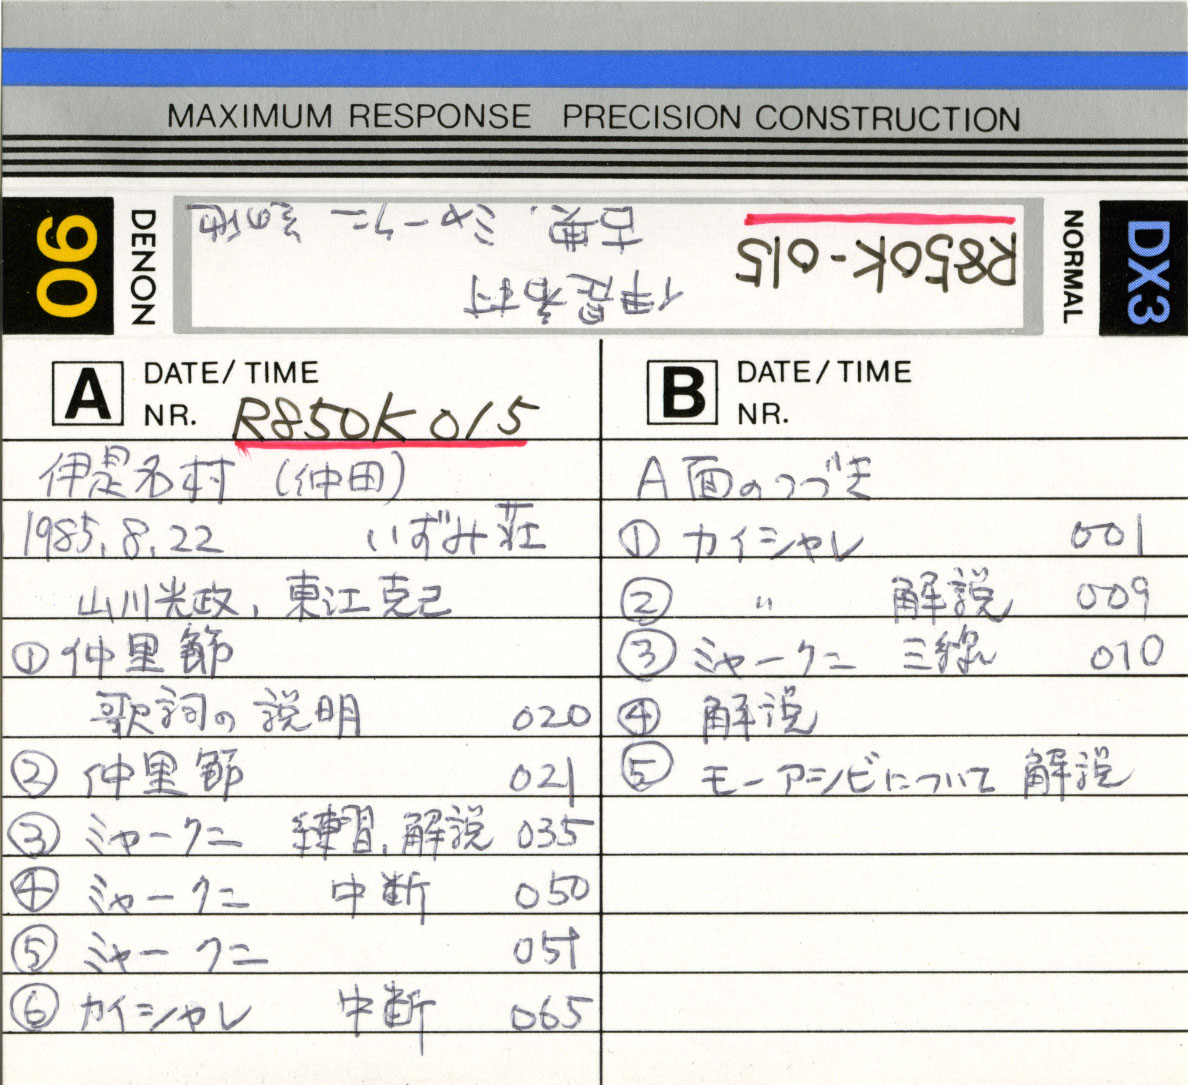 MAXIMUM RESPONSE PRECISION CONSTRUCTION
90
DENON
伊是名村
古典. ミャークニー その他
R850K-015
NORMAL
DX3
A
DATE/TIME
NR. R850K015
伊是名村 (仲田)
1985.8.22 いずみ荘
山川光政, 東江克己
① 仲里節
歌詞の説明 020
② 仲里節 021
③ ミャークニ 練習, 解説 035
④ ミャークニ 中断 050
⑤ ミャークニ 051
⑥ カイシャレ 中断 065
B
DATE/TIME
NR.
A面のつづき
① カイシャレ 001
② 〃 解説 009
③ ミャークニ 三線 010
④ 解説
⑤ モーアシビについて 解説